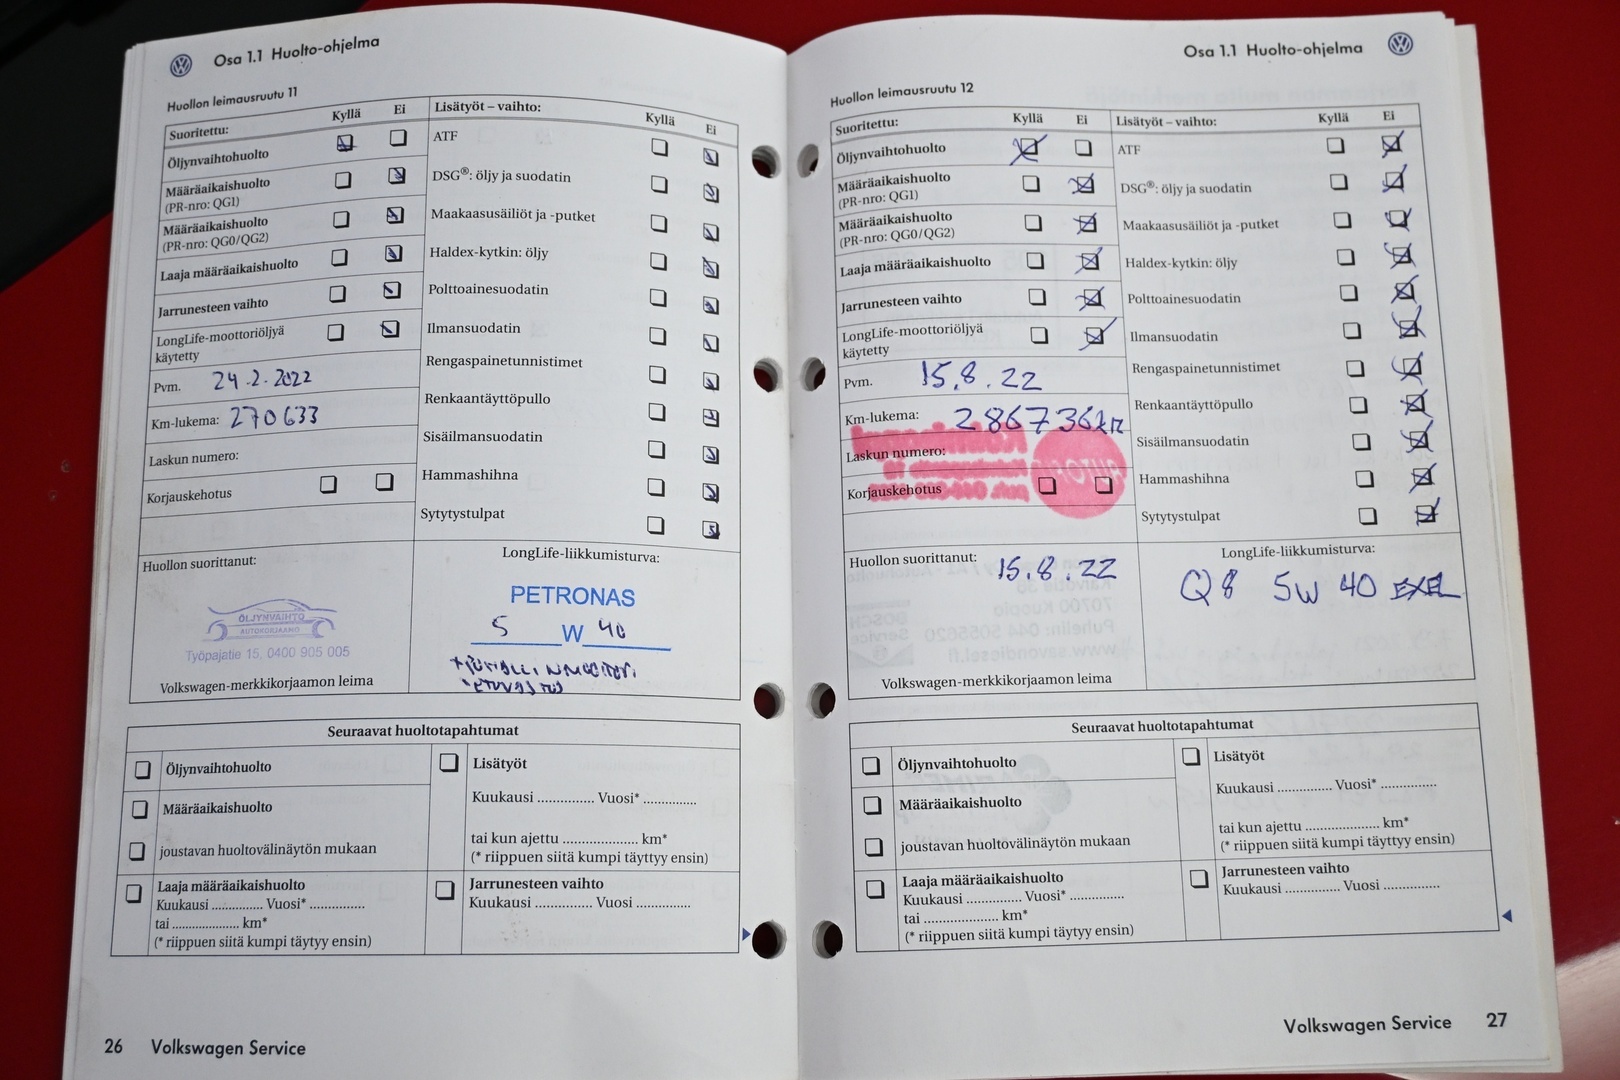 Osa 1.1 Huolto-ohjelma
Huollon leimausruutu 11
Suoritettu: Kyllä Ei
Öljynvaihtohuolto
Määräaikaishuolto
(PR-nro: QG1)
Määräaikaishuolto
(PR-nro: QG0/QG2)
Laaja määräaikaishuolto
Jarrunesteen vaihto
LongLife-moottoriöljyä
käytetty
Pvm. 24.2.2022
Km-lukema: 270633
Laskun numero:
Korjauskehotus
Lisätyöt – vaihto: Kyllä Ei
ATF
DSG®: öljy ja suodatin
Maakaasusäiliöt ja -putket
Haldex-kytkin: öljy
Polttoainesuodatin
Ilmansuodatin
Rengaspainetunnistimet
Renkaantäyttöpullo
Sisäilmansuodatin
Hammashihna
Sytytystulpat
Huollon suorittanut:
ÖLJYNVAIHTO
AUTOKORJAAMO
Työpajatie 15, 0400 905 005
Volkswagen-merkkikorjaamon leima
LongLife-liikkumisturva:
PETRONAS
5 W 40
Seuraavat huoltotapahtumat
Öljynvaihtohuolto
Määräaikaishuolto
joustavan huoltovälinäytön mukaan
Laaja määräaikaishuolto
Kuukausi .............. Vuosi* ...............
tai .................... km*
(* riippuen siitä kumpi täytyy ensin)
Lisätyöt
Kuukausi ............... Vuosi* ..............
tai kun ajettu .................... km*
(* riippuen siitä kumpi täyttyy ensin)
Jarrunesteen vaihto
Kuukausi ............... Vuosi ...............
26 Volkswagen Service
Osa 1.1 Huolto-ohjelma
Huollon leimausruutu 12
Suoritettu: Kyllä Ei
Öljynvaihtohuolto
Määräaikaishuolto
(PR-nro: QG1)
Määräaikaishuolto
(PR-nro: QG0/QG2)
Laaja määräaikaishuolto
Jarrunesteen vaihto
LongLife-moottoriöljyä
käytetty
Pvm. 15.8.22
Km-lukema: 286736km
Laskun numero:
Korjauskehotus
Lisätyöt – vaihto: Kyllä Ei
ATF
DSG®: öljy ja suodatin
Maakaasusäiliöt ja -putket
Haldex-kytkin: öljy
Polttoainesuodatin
Ilmansuodatin
Rengaspainetunnistimet
Renkaantäyttöpullo
Sisäilmansuodatin
Hammashihna
Sytytystulpat
Huollon suorittanut: 15.8.22
Volkswagen-merkkikorjaamon leima
LongLife-liikkumisturva:
Q8 5W 40 EXEL
Seuraavat huoltotapahtumat
Öljynvaihtohuolto
Määräaikaishuolto
joustavan huoltovälinäytön mukaan
Laaja määräaikaishuolto
Kuukausi ............... Vuosi* ...............
tai .................... km*
(* riippuen siitä kumpi täytyy ensin)
Lisätyöt
Kuukausi ............... Vuosi* ...............
tai kun ajettu .................... km*
(* riippuen siitä kumpi täyttyy ensin)
Jarrunesteen vaihto
Kuukausi ............... Vuosi ...............
Volkswagen Service 27